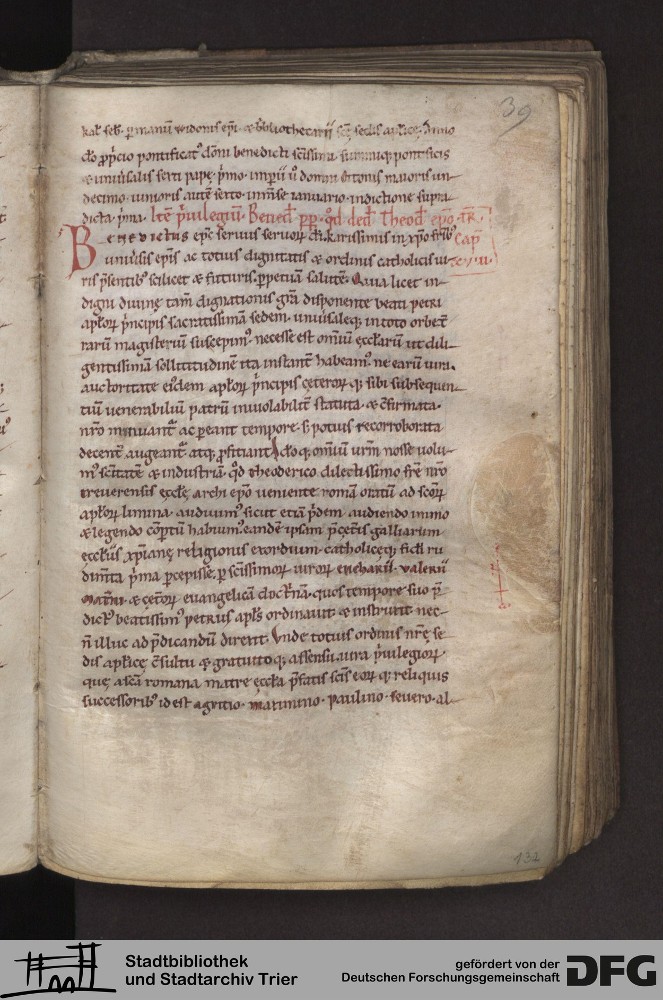 39
kal̄ feb̄. p manū widonis ep̄i. & bibliothecarii scę̄ sedis aplicę. Anno
dō p̄picio pontificat᾽ dōni benedicti sc̄issimi summiq; pontificis
& uniu̅salis sexti papę. p̄mo. imp̄ii u̅ domni ottonis maioris un
decimo. iunioris autē sexto. in m̄se ianuario. indictione supra
dicta. p̄ma. Itē p̄uilegiū. Bened̄ pp. q̄d ded̄ Theod̄ ep̄o. TR̄
Benedictus ep̄c seruus seruoꝝ dī. karissimis in xp̄o fr̄ib᾽ Cap̄
uniu̅sis ep̄is ac totius dignitatis & ordinis catholicis ui
ris p̄sentib᾽ scilicet & futuris. p̄petuā salutē. Quia licet in
digni diuinę tam̄ dignationis grā disponente beati petri
apl̄oꝝ p̄ncipis sacratissimā sedem. uniu̅saleq; in toto orbe tr̄
rarū magisteriū suscepim᾽. necesse est om̄iū ęccl̄arū ut dili
gentissimā sollicitudinē ita instant̄ habeam᾽. ne earū iura.
auctoritate eiꝰdem apl̄oꝝ p̄ncipis cęteroꝝ q; sibi subsequen
tiū uenerabiliū patrū inuiolabilit̄ statuta. & c̄firmata.
nr̄o minuant᾽ ac pereant tempore. s; potius recorroborata
decent̄ augeant᾽. atq; p̄fitiant᾽. Ido q; om̄iū ur̄m nosse uolu
m᾽ sc̄itatē & industriā. q̄d theoderico dilectissimo fr̄e nr̄o
treuerensis ęccl̄ę archi ep̄o ueniente romā oratū ad sc̄oꝝ
apl̄oꝝ limina. audiuim᾽ sicut etiā p̄dem audiendo immo
& legendo cōptū habuim᾽. eandē ipsam p̄ cęt̄is galliarum
ęccl̄iis xp̄ianę religionis exordium. catholicęq; fidī ru
dim̄ta p̄ma percepisse. p sc̄issimoꝝ uiroꝝ eucharii. valerii
Mat̄ni. & cęt̄oꝝ euangelicā doctrinā. quos tempore suo p̄
dict᾽ beatissim᾽ petrus apl̄s ordinauit. & instruxit. nec
n̄ illuc ad p̄dicandū direxit. Vnde totius ordinis nr̄ę se
dis apl̄icę c̄sultu & gratuito q; assensu. iura p̄uilegioꝝ.
quę a sc̄a romana matre ęccl̄a p̄fatis sc̄is eoꝝ q; reliquis
successorib᾽ id est agritio. maximino. paulino. seuero. al
132
Stadtbibliothek
und Stadtarchiv Trier
gefördert von der
Deutschen Forschungsgemeinschaft
DFG